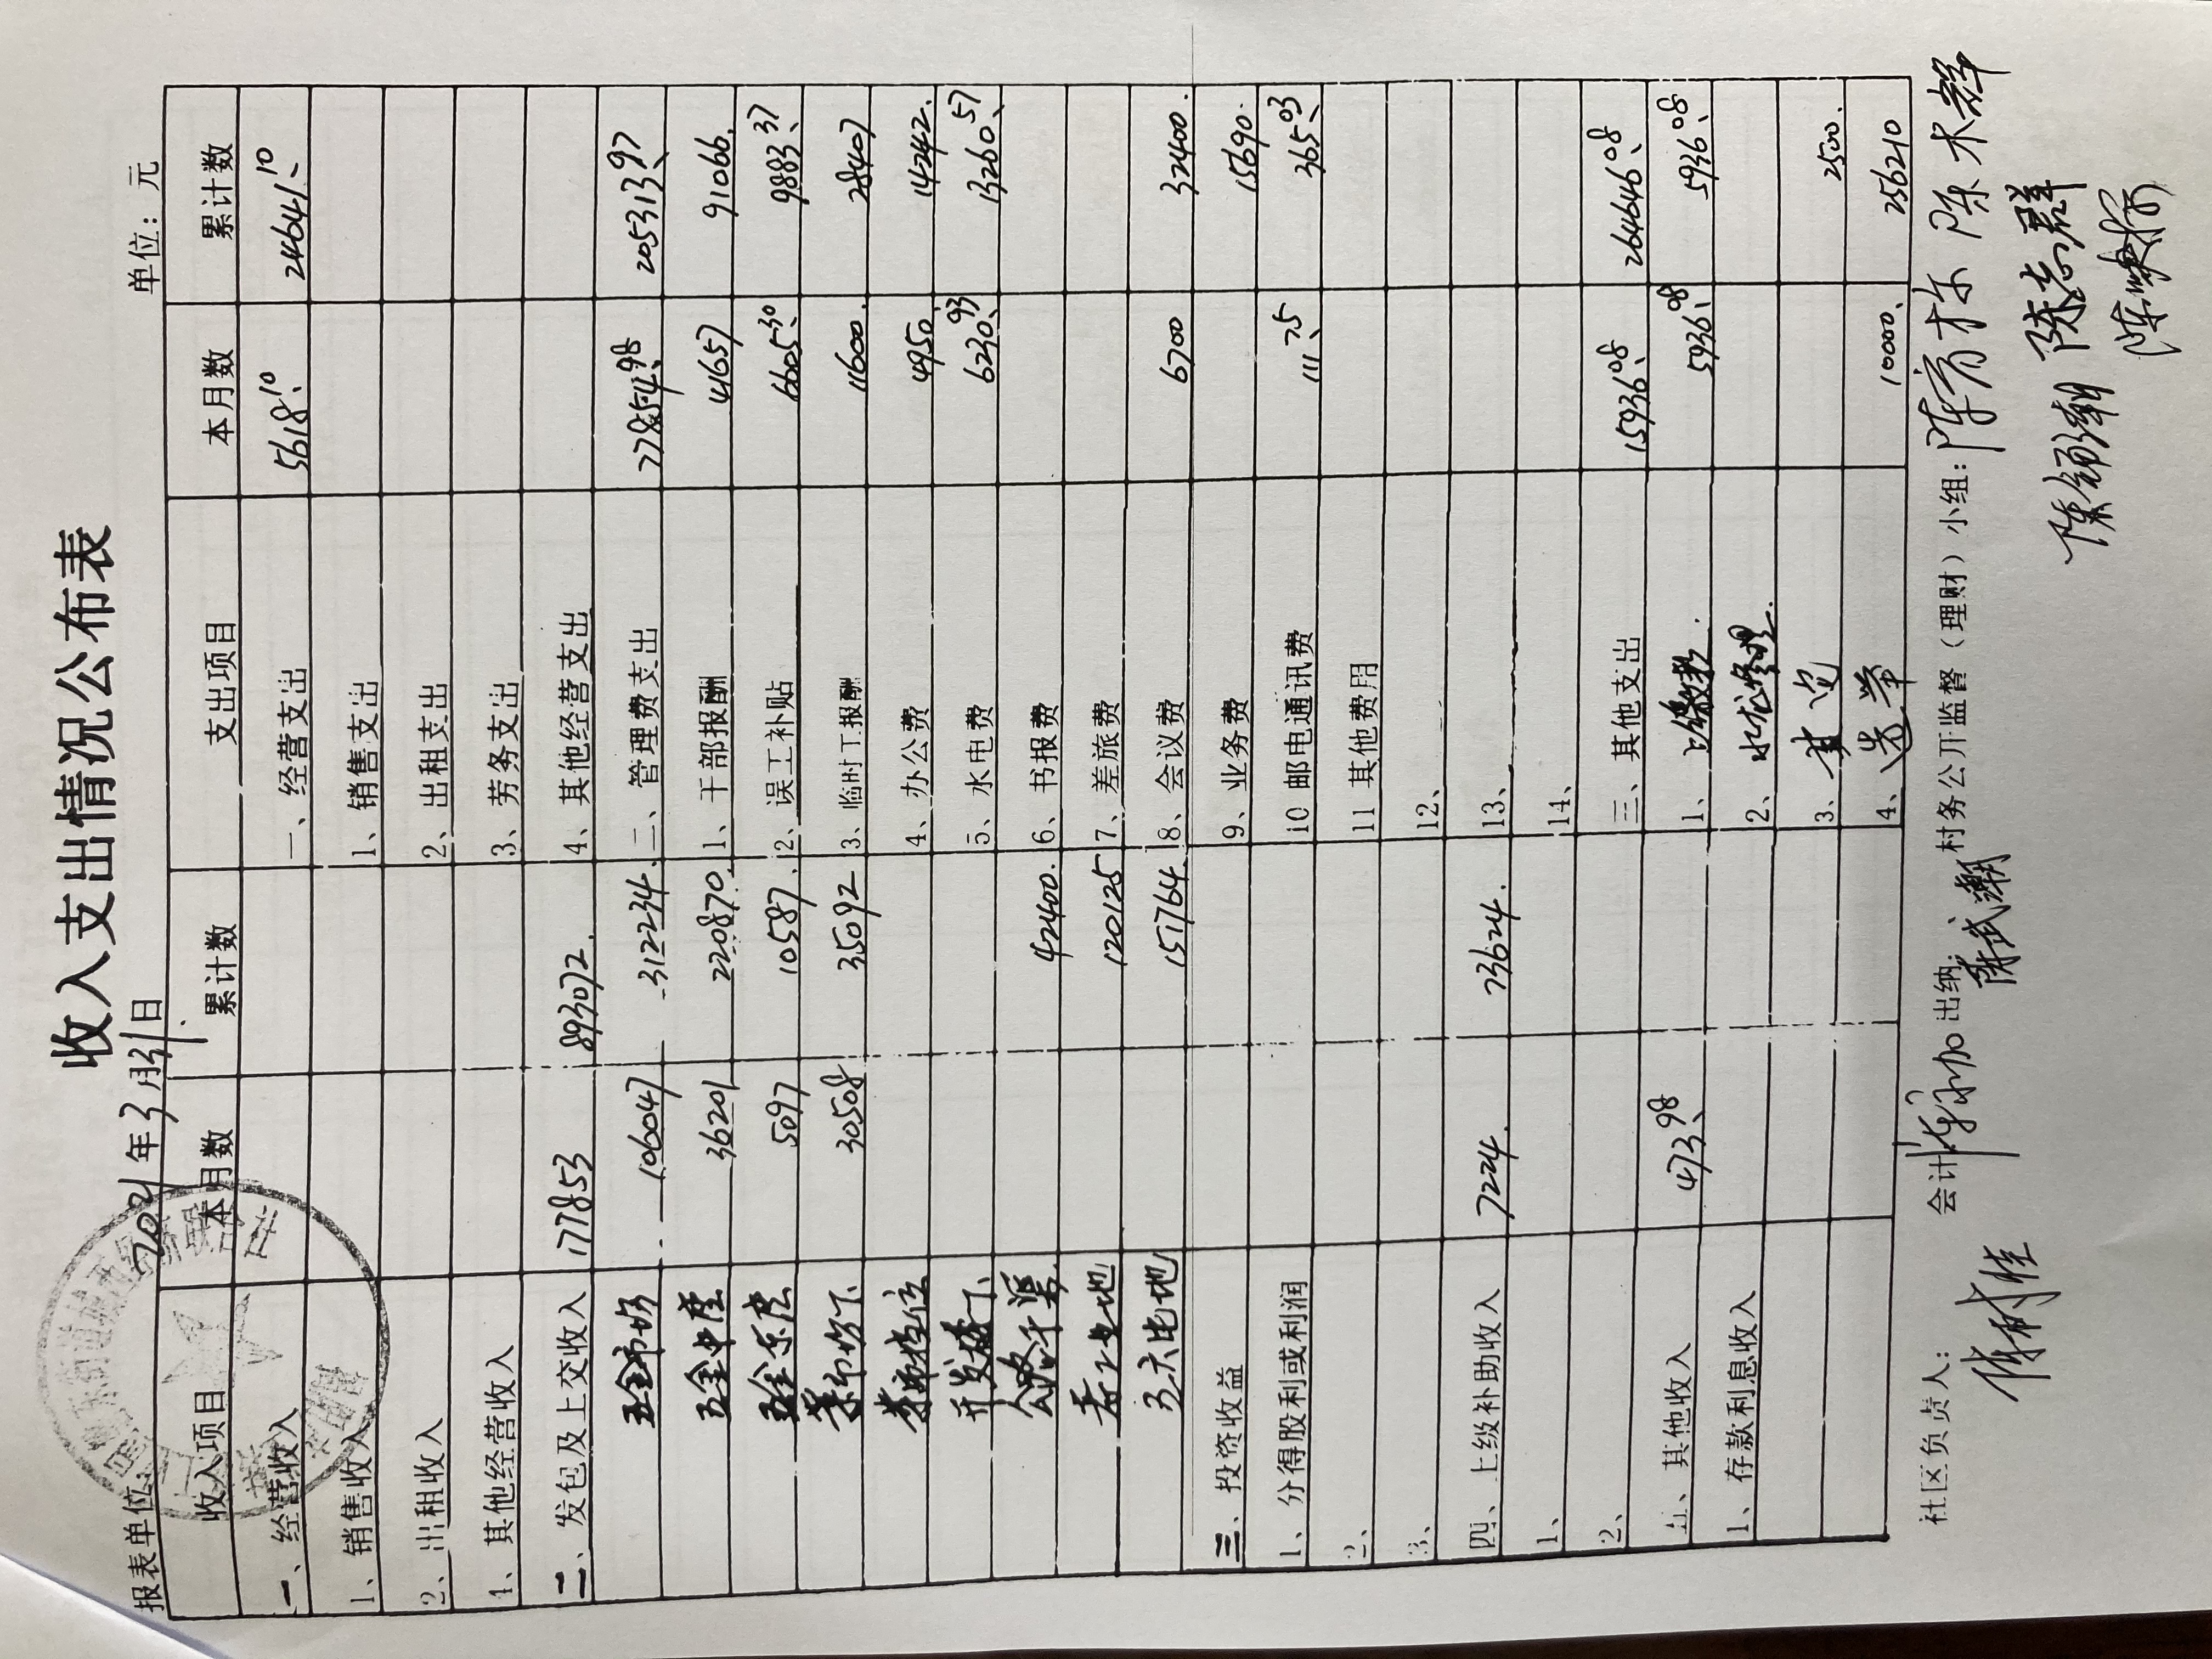 收入支出情况公布表
报表单位: 2021年3月31日 单位：元
收入项目 本月数 累计数 支出项目 本月数 累计数
一、经营收入 一、经营支出 5618.10 24641.10
1、销售收入 1、销售支出
2、出租收入 2、出租支出
4、其他经营收入 3、劳务支出
二、发包及上交收入 177853 893072. 4、其他经营支出
五金市场 106047 312234. 二、管理费支出 77854.98 205313.97
五金中座 36201 220870. 1、干部报酬 41657 91066.
五金东座 5097 10587. 2、误工补贴 6605.30 9883.37
菜市场下 30508 35092 3、临时工报酬 11600. 28407
菜市档位 4、办公费 4950. 14242.
开发楼下 5、水电费 6230.93 13260.57
公路干渠 42400. 6、书报费
120125 7、差旅费
三六屯地 151764. 8、会议费 6700 32400.
三、投资收益 9、业务费 15690.
1、分得股利或利润 10邮电通讯费 111.75 365.03
2、 11其他费用
3、 12、
四、上级补助收入 7224. 73624. 13、
1、 14、
2、 三、其他支出 15936.08 264646.08
五、其他收入 473.98 1、上缴税款. 5936.08 5936.08
1、存款利息收入 2、水尤修理.
3、其它 2500.
4、选举 10000. 256210
社区负责人: 会计 出纳: 村务公开监督（理财）小组: 陈木辉
陈志群